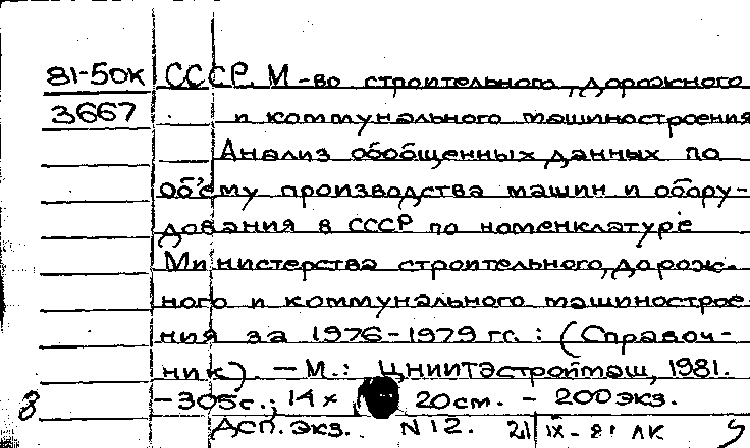 81-50К СССР. М-во строительного, дорожного
3667 и коммунального машиностроения
Анализ обобщенных данных по
объему производства машин и обору-
дования в СССР по номенклатуре
Министерства строительного, дорож-
ного и коммунального машинострое
ния за 1976-1979 гг.: (Справоч-
ник). — М.: ЦНИИТЭстроймаш, 1981.
-305с.; 14х 20см. - 200 экз.
8 ДСП. Экз. N 12. 21/IX-81 ЛК